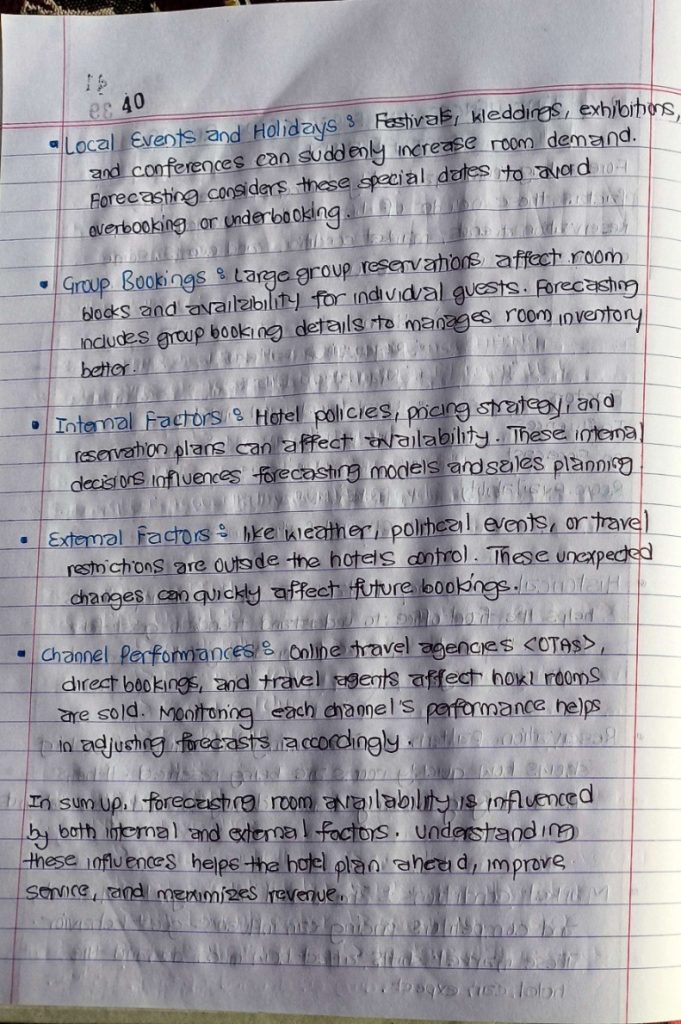 40
• Local Events and Holidays : Festivals, weddings, exhibitions,
and conferences can suddenly increase room demand.
Forecasting considers these special dates to avoid
overbooking or underbooking.
• Group Bookings : Large group reservations affect room
blocks and availability for individual guests. Forecasting
includes group booking details to manages room inventory
better.
• Internal Factors : Hotel policies, pricing strategy, and
reservation plans can affect availability. These internal
decisions influences forecasting models and sales planning
• External Factors : like weather, political events, or travel
restrictions are outside the hotels control. These unexpected
changes can quickly affect future bookings.
• Channel Performances : Online travel agencies <OTAs>,
direct bookings, and travel agents affect how rooms
are sold. Monitoring each channel's performance helps
in adjusting forecasts accordingly.
In sum up, forecasting room availability is influenced
by both internal and external factors. Understanding
these influences helps the hotel plan ahead, improve
service, and meximizes revenue.